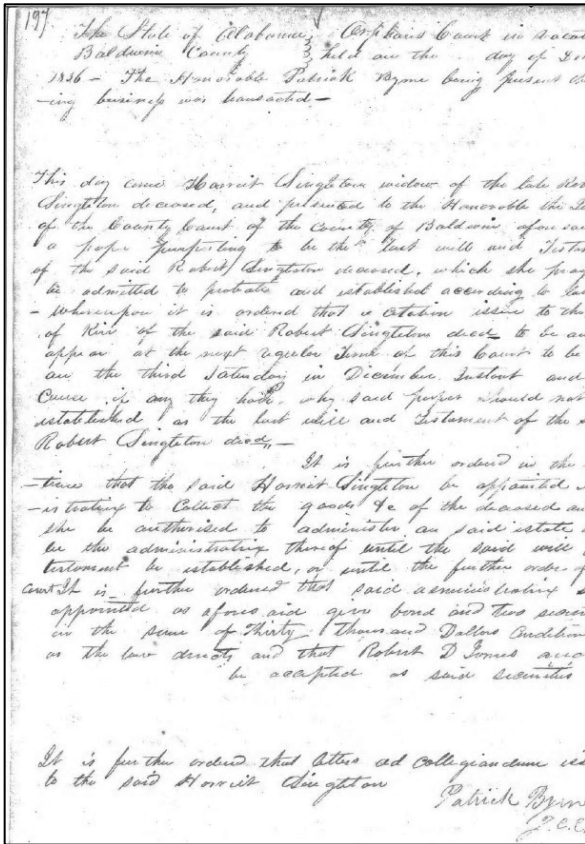 197.
The State of Alabama Orphans Court in
Baldwin County held on the day of
1836 - The Honorable Patrick Byrne being present
-ing business was transacted -
This day came Harriet Singleton widow of the late
Singleton deceased, and presented to the Honorable the
of the County Court of the County of Baldwin aforesaid
a paper purporting to be the last will and
of the said Robert Singleton deceased, which she
be admitted to probate and established according to
- whereupon it is ordered that a citation issue to the
of Kin of the said Robert Singleton decd to be and
appear at the next regular Term of this Court to be
on the third Saturday in December Instant and
Cause if any they have, why said paper should not
established as the last will and Testament of the
Robert Singleton decd, -
It is further ordered in the
-time that the said Harriet Singleton be appointed
-istratrix to Collect the goods &c of the deceased
she be authorised to administer on said estate
be the administratrix thereof until the said will
testament be established, or until the further order of
Court It is further ordered that said administratrix
appointed as aforesaid give bond and two
in the sum of Thirty Thousand Dollars
as the law directs and that Robert D James and
be accepted as said securities
It is further ordered that letters ad collegiandum
to the said Harriet Singleton
Patrick Byrne
J.C.C.